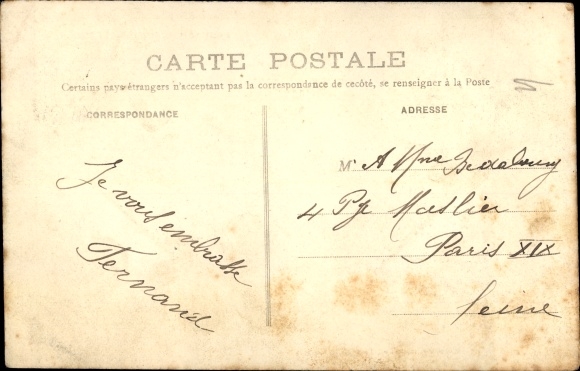 CARTE POSTALE
Certains pays étrangers n'acceptant pas la correspondance de ce côté, se renseigner à la Poste
CORRESPONDANCE
ADRESSE
Je vous embrasse
Fernand
M A Mme
4 Pge Maslier
Paris XIX
Seine